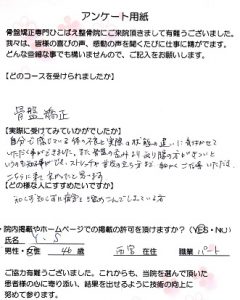 アンケート用紙
骨盤矯正専門ひこばえ整骨院にご来院頂きまして有難うございました。
我々は、皆様の喜びの声、感動の声を聞くたびに仕事に精がでます。
どんな些細な事でも構いませんので、ご記入をお願いします。
【どのコースを受けられましたか】
骨盤矯正
【実際に受けてみていかがでしたか】
自分で感じている体の不良と実際は状態の違いに気付かせて
いただく事ができました。また骨盤の歪みより
いつも
こちらに来て良かったと思います
【どの様な人にすすめたいですか】
知らず知らずに
・院内掲載やホームページでの掲載の許可を頂けますか?（YES・NO）
氏名 Y・S
男性・女性 46歳 西宮 在住 職業 パート
ご協力有難うございました。これからも、当院を選んで頂いた
患者様の心に寄り添い、結果を出せるように技術の向上に
努めて参ります。